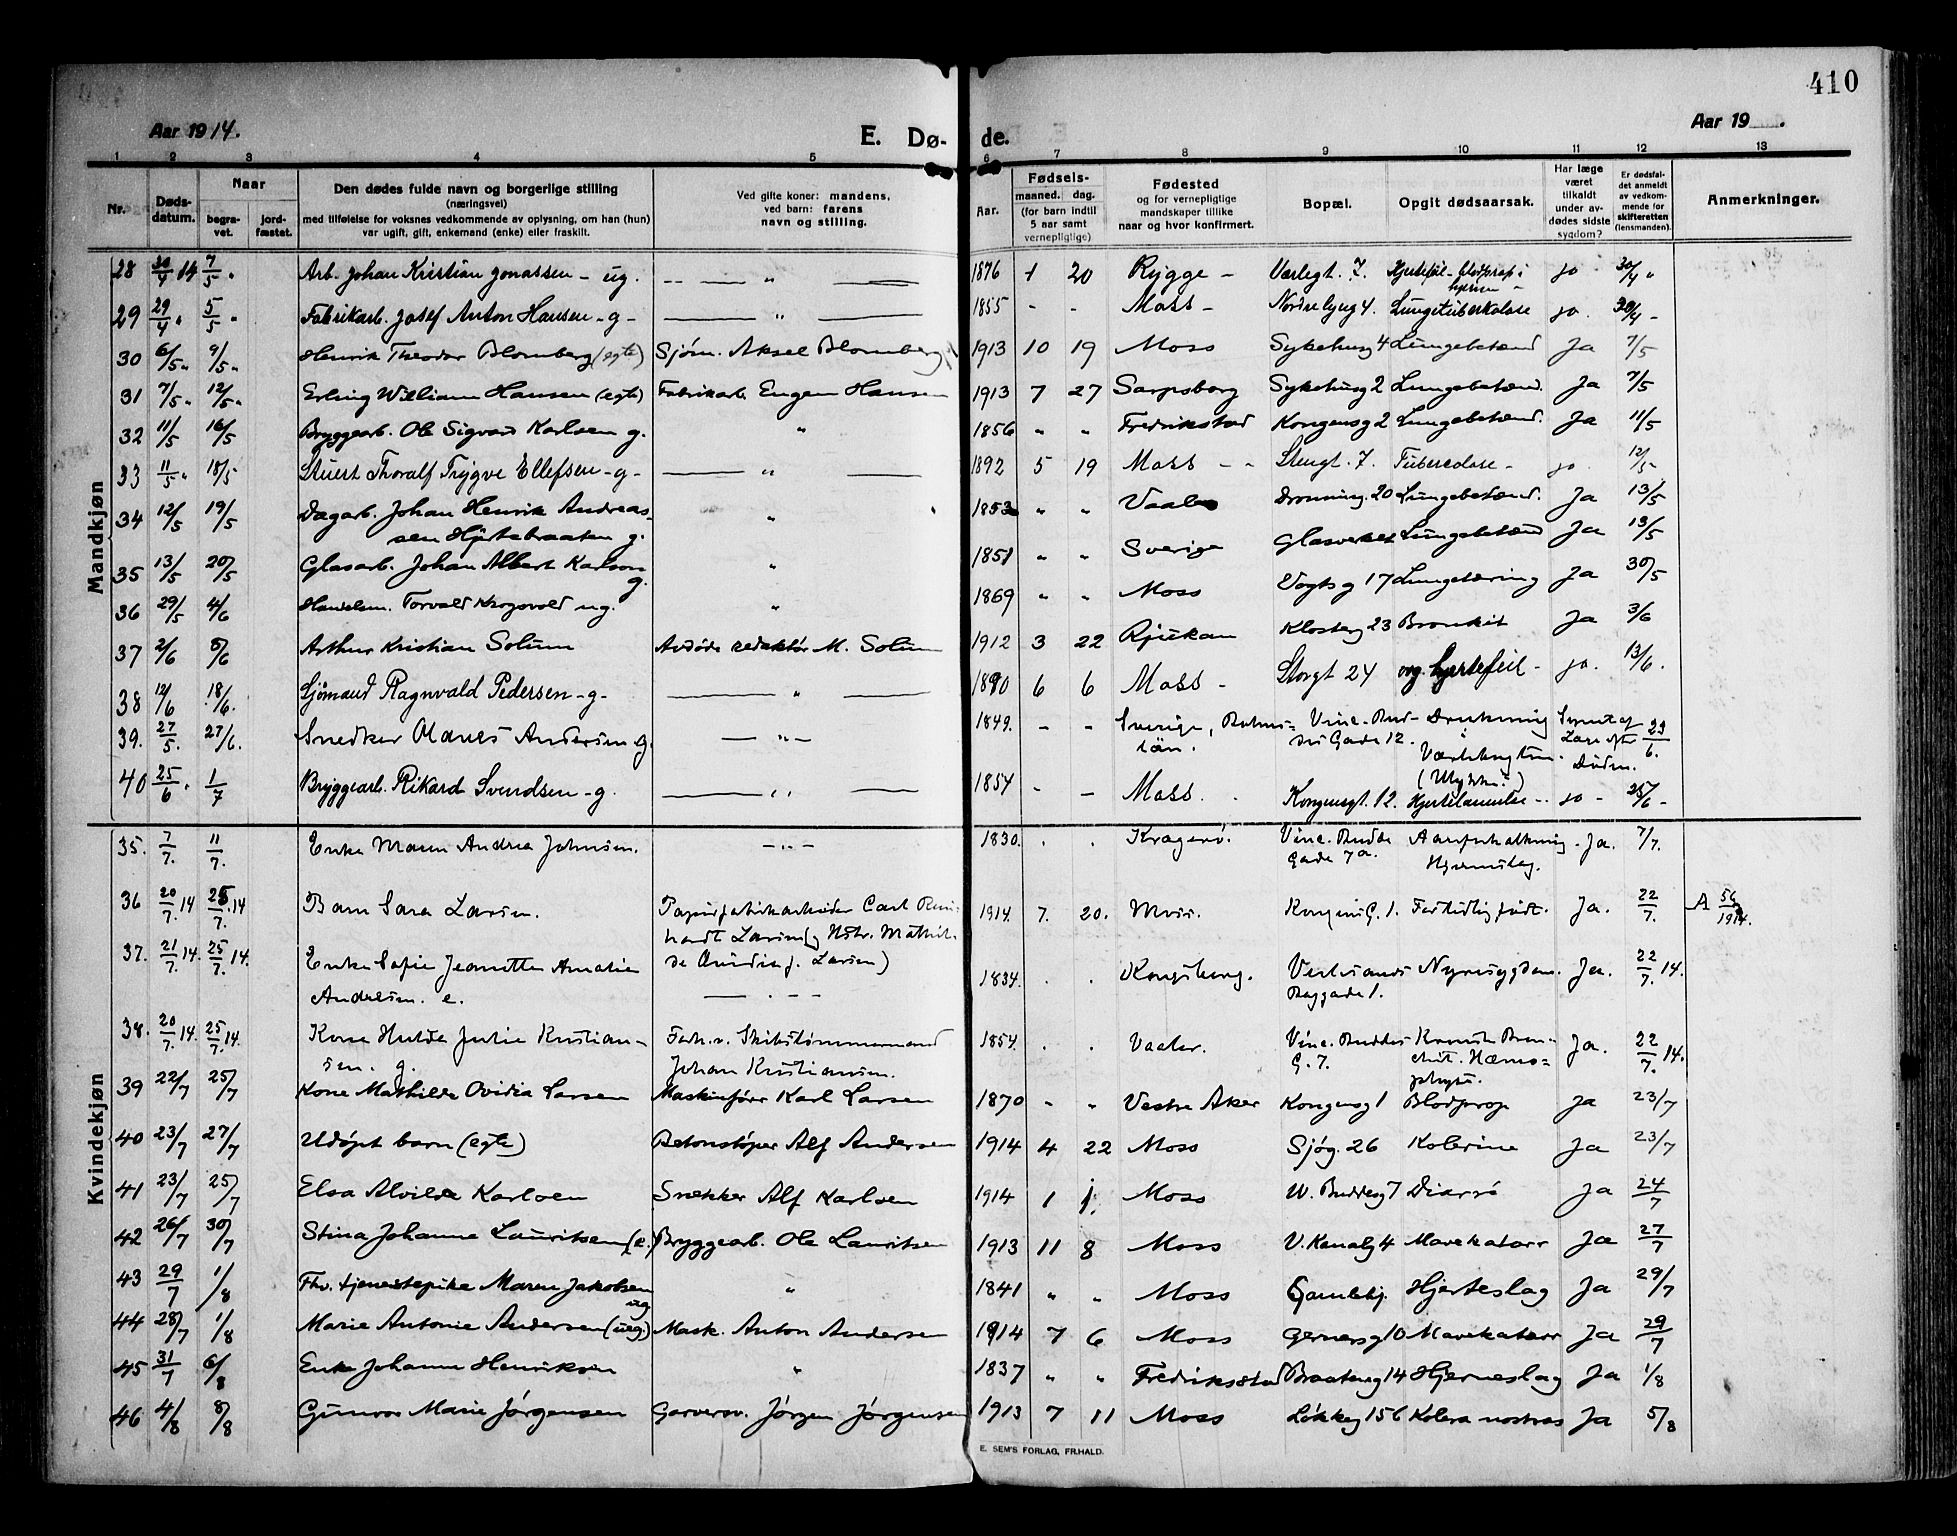 410
Aar 1914.
E. Dø-
de.
Aar 19 .
1 2 3 4 5 6 7 8 9 10 11 12 13
Nr. Dødsdatum. Naar begravet. jordfæstet.
Den dødes fulde navn og borgerlige stilling
(næringsvei)
med tilføielse for voksnes vedkommende av oplysning, om han (hun)
var ugift, gift, enkemand (enke) eller fraskilt.
Ved gifte koner: mandens,
ved barn: farens
navn og stilling.
Fødsels-
Aar. maaned. dag.
(for barn indtil
5 aar samt
vernepligtige)
Fødested
og for vernepligtige
mandskaper tillike
naar og hvor konfirmert.
Bopæl.
Opgit dødsaarsak.
Har læge
været
tilkaldt
under av-
dødes sidste
sygdom?
Er dødsfal-
det anmeldt
av vedkom-
mende for
skifteretten
(lensmanden).
Anmerkninger.
Mandkjøn
28 30/4 14 7/5 " Arb. Johan Kristian Jonassen - ug. " 1876 1 20 Rygge - Værlegt. 7. Hjertefeil - blodprop i hjernen - ja 30/4 "
29 29/4 " 5/5 " Fabrikarb. Josef Anton Hansen - g - " 1855 - - Moss - Nordre byg 4. Lungetuberkulose ja. 30/4 -
30 6/5 " 9/5 " Henrik Theodor Blomberg (egte) Sjøm. Aksel Blomberg 1913 10 19 Moss Sykehusg 4 Lungebetænd Ja 7/5
31 7/5 " 12/5 " Erling William Hansen (egte) Fabrikarb Eugen Hansen 1913 7 27 Sarpsborg Sykehusg 2 Lungebetænd. Ja 7/5
32 11/5 16/5 Bryggearb. Ole Sigvard Karlsen g. " 1856 " " Fredrikstad Kongensg 2 Lungebetænd. Ja 11/5
33 11/5 " 18/5 Stuert Thoralf Trygve Ellefsen - g - " 1892 5 19 Moss - - Stengt. 7. Tuberculose - ja. 12/5
34 12/5 19/5 Dagarb. Johan Henrik Andreas-
sen Hjortebraaten g. " 1853 " " Vaaler Dronning. 20 Lungebetænd. Ja 13/5
35 13/5 20/5 Glasarb. Johan Albert Karlson g. " 1851 " " Sverige Glasverket Lungebetænd Ja 13/5
36 29/5 4/6 Handelsm. Torvald Krogsvold ug. " 1869 " " Moss Vogtsg 17 Lungetæring Ja 30/5
37 2/6 6/6 Arthur Kristian Solum Avdøde redaktør M. Solum 1912 3 22 Rjukan Klosterg 23 Bronkit Ja 3/6
38 12/6 18/6. Sjømand Ragnvald Pedersen - g - " 1890 6 6 Moss - Storgt 24 org. hjertefeil - ja. 13/6.
39. 27/5. 27/6. Snedker Andersen g. " 1849. - - Sverige, län. Vinc. Bud-
des Gade 12. Drukning i Døden. 23/6.
40 25/6 1/7 Bryggearb. Rikard Svendsen - g. " 1854 - - Moss. Kongensgt. 12. Hjertelammelse - ja - 25/6 -
Kvindekjøn
35. 7/7. 11/7. Enke Maren Andrea Johnsen. 1830. . . Kragerø. Vinc. Budde
Gade 7a. Aareforkalkning
Hjerneslag. Ja. 7/7.
36 20/7. 14 25/7. 14 Barn Sara Larsen. Papirfabrikarbeider Carl Rein-
hardt Larsen (og Hstr. Mathil-
de Ovidia f. Larsen) 1914. 7. 20. Moss. Kongens G. 1. Fortidlig født. Ja. 22/7. A 56/1914.
37. 21/7. 14. 25/7. 14. Enke Sofie Jeanette Amalie
Andresen. e. 1834. . . Kongsberg. Vestrands
Baggade 1. Nyresygdom. Ja. 22/7. 14.
38. 20/7. 14. 25/7. 14. Kone Hulda Julie Kristian-
sen. g. Forh.v. Skibstømmermand
Johan Kristiansen. 1854. . . Vaaler. Vinc. Buddes
G. 7. Kronisk Bron-
chit. Hæmo-
ptyse. Ja. 22/7. 14.
39 22/7 25/7 Kone Mathilde Ovidia Larsen Maskinfører Karl Larsen 1870 - " Vestre Aker Kongensg 1 Blodprop Ja 23/7
40 23/7 27/7 Udøpt barn (egte) Betonstøper Alf Andersen 1914 4 22 Moss Sjøg. 26 Kolerine Ja 23/7
41 23/7 25/7 Elsa Alvilde Karlsen Snekker Alf Karlsen 1914 1 1. Moss W. Buddesg 7 Diarré Ja 24/7
42 26/7 30/7 Stina Johanne Lauritsen (e.) Bryggearb. Ole Lauritsen 1913 11 8 Moss V. Kanalg 4 Mavekatarr Ja 27/7
43 29/7 1/8 Fhv. tjenestepike Maren Jakobsen ug " 1841 " " Moss Gamlehj. Hjerteslag Ja 29/7
44 28/7 1/8 Marie Antonie Andersen (ueg.) Mask. Anton Andersen 1914 7 6 Moss Gernersg 10 Mavekatarr Ja 29/7
45 31/7 6/8 Enke Johanne Henriksen " 1837 " " Fredriksstad Braateng 14 Hjerneslag Ja 1/8
46 4/8 8/8 Gunvor Marie Jørgensen Garversv. Jørgen Jørgensen 1913 7 11 Moss Løkkeg 156 Kolera nostras Ja 5/8
E. SEM'S FORLAG, FR.HALD.